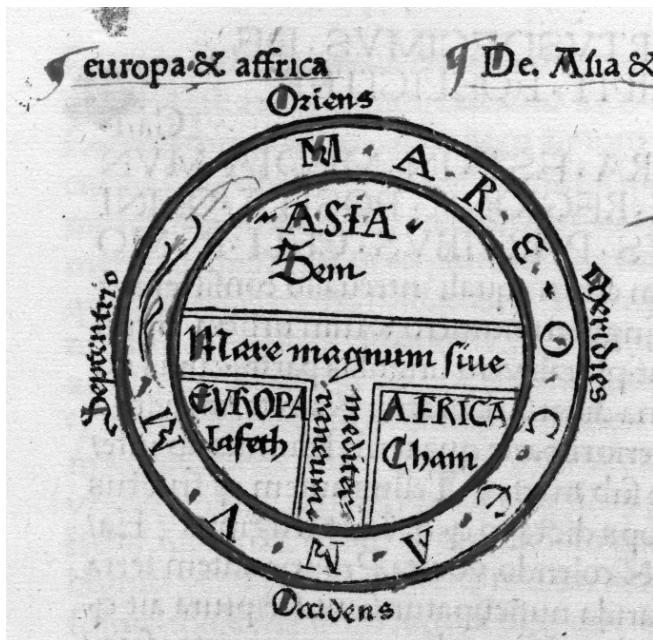 europa & affrica
De. Asia &
Oriens
M·A·R·E·O·C·E·A·N·V·M
·ASIA·
Sem
Septentrio
Meridies
Mare magnum sive
EVROPA
Iafeth
mediter
raneum
AFRICA
Cham
Occidens